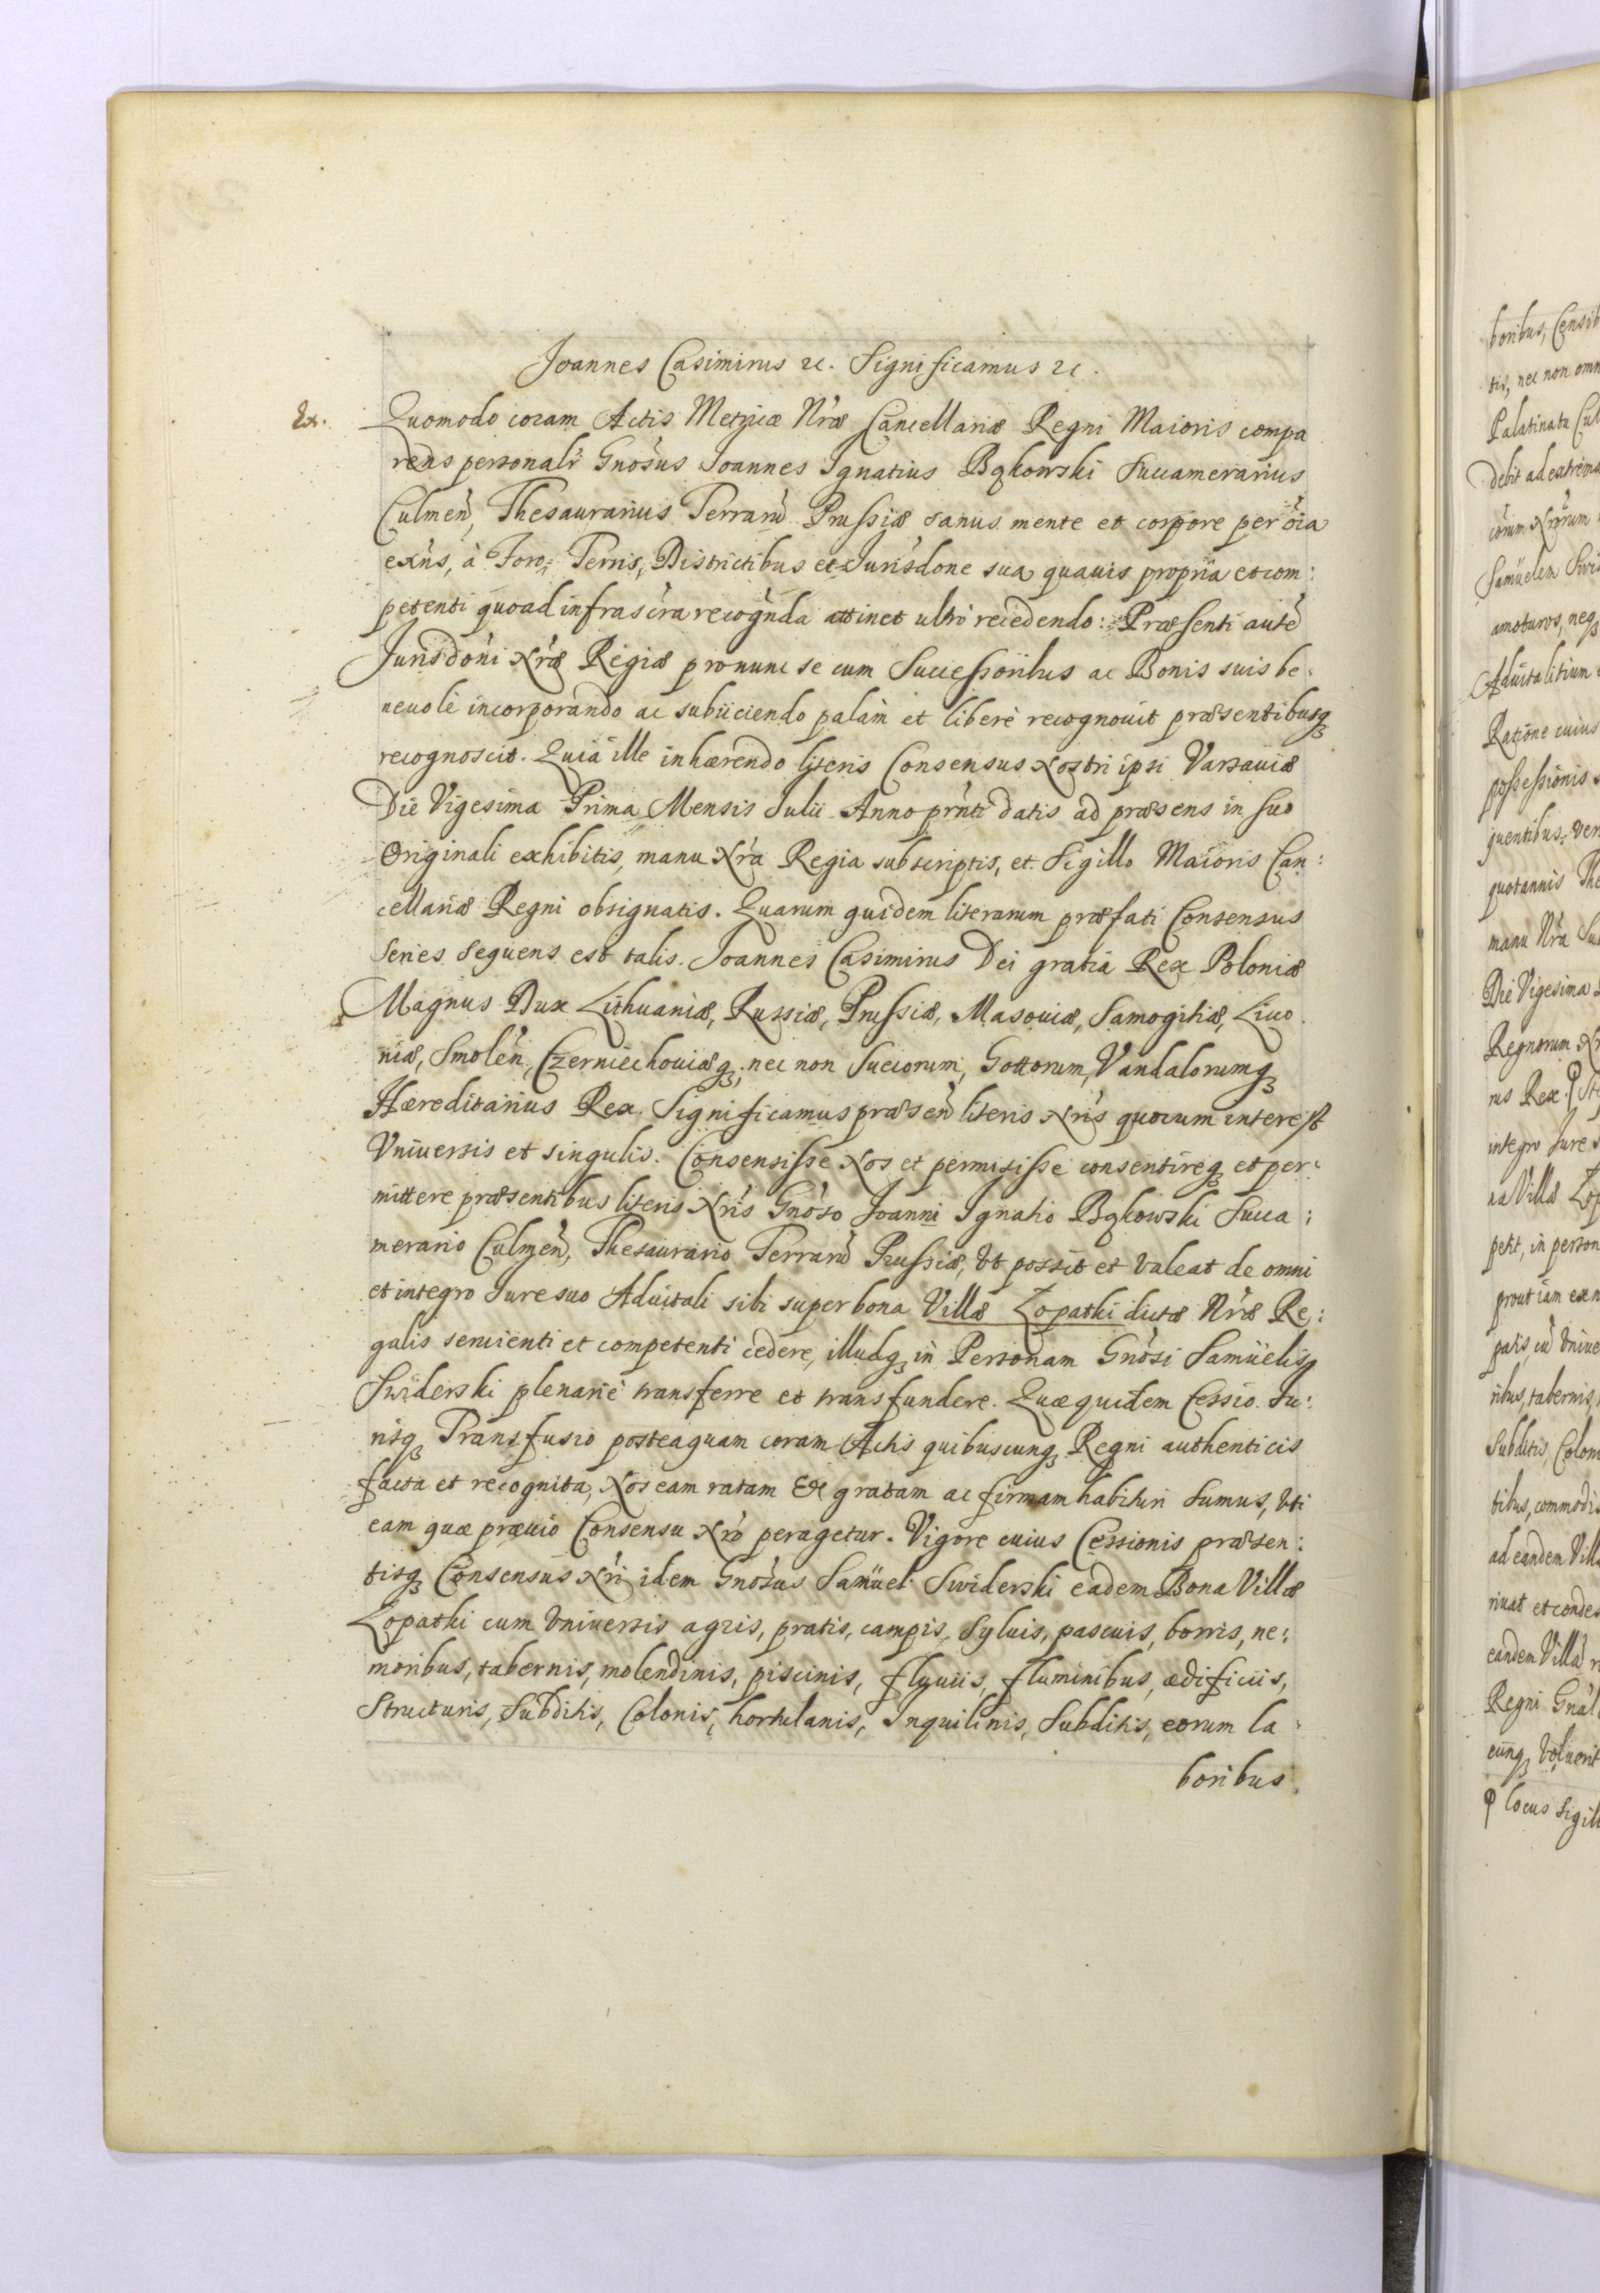 Joannes Casimirus ꝛc. Significamus ꝛc.
Ex.
Quomodo coram Actis Metricæ Nr̃æ Cancellariæ Regni Maioris compa
rens personalr̃ Gnosus Joannes Ignatius Bąkowski Succamerarius
Culmeñ, Thesaurarius Terraru᷈ Prussiæ sanus mente et corpore per oĩa
exñs, à Foro, Terris, Districtibus et Jurisdone sua quauis propria et com:
petenti quoad infrascr̃a recognda attinet ultrò recedendo: Præsenti aute᷈
Jurisdoni Nr̃æ Regiæ pronunc se cum Successoribus ac Bonis suis be:
neuolè incorporando ac subijciendo palàm et liberè recognouit præsentibusqꝫ
recognoscit. Quia ille inhærendo literis Consensus Nostri ipsi Varsauiæ
Die Vigesima Prima Mensis Julii Anno prn̄ti datis ad præsens in suo
Originali exhibitis, manu Nr̃a Regia subscriptis, et Sigillo Maioris Can:
cellariæ Regni obsignatis. Quarum quidem literarum præfati Consensus
Series sequens est talis. Joannes Casimirus Dei gratia Rex Poloniæ
Magnus Dux Lithuaniæ, Russiæ, Prussiæ, Masouiæ, Samogitiæ, Liuo
niæ, Smoleñ, Czerniechouiæqꝫ, nec non Suecorum, Gottorum, Vandalorumqꝫ
Hæreditarius Rex. Significamus præseñ literis Nr̃is quorum interest
Vniuersis et singulis. Consensisse Nos et permisisse consentireqꝫ et per:
mittere præsentibus literis Nr̃is Gnoso Joanni Ignatio Bąkowski Succa:
merario Culmeñ, Thesaurario Terraru᷈ Prussiæ, Vt possit et valeat de omni
et integro Jure suo Aduitali sibi super bona Villæ Lopatki dictæ Nr̃æ Re:
galis seruienti et competenti cedere, illudqꝫ in Personam Gnosi Samüelis
Swiderski plenariè transferre et transfundere. Quæ quidem Cessio Ju:
risqꝫ Transfusio posteaquam coram Actis quibuscunqꝫ Regni authenticis
facta et recognita, Nos eam ratam & gratam ac firmam habituri sumus, Vti
eam quæ præuio Consensu Nr̃o peragetur. Vigore cuius Cessionis præsen:
tisqꝫ Consensus Nr̃i idem Gnosus Samüel Swiderski eadem Bona Villæ
Lopatki cum Vniuersis agris, pratis, campis, Syluis, pascuis, borris, ne:
moribus, tabernis, molendinis, piscinis, fluuiis, fluminibus, ædificiis,
Structuris, Subditis, Colonis, hortulanis, Inquilinis, Subditis, eorum la
boribus
boribus, Censib
tis, nec non omn
Palatinatu Cul
debit ad extrema
Samüelem Swid
amoturos, neqꝫ
Aduitalitium
Ratione cuius
possessionis
quentibus, ver
quotannis The
manu Nr̃a Su
Die Vigesima
Regnorum Nr
rus Rex.
integro Jure
na Villæ Lop
petit, in person
prout iam ex n
patis, cu᷈ Vniue
ribus, tabernis,
Subditis, Colon
tibus, commodis
ad eandem Villa
riuat et condes
eandem Villa᷈
Regni Gnal
cunqꝫ Voluerit
locus Sigill